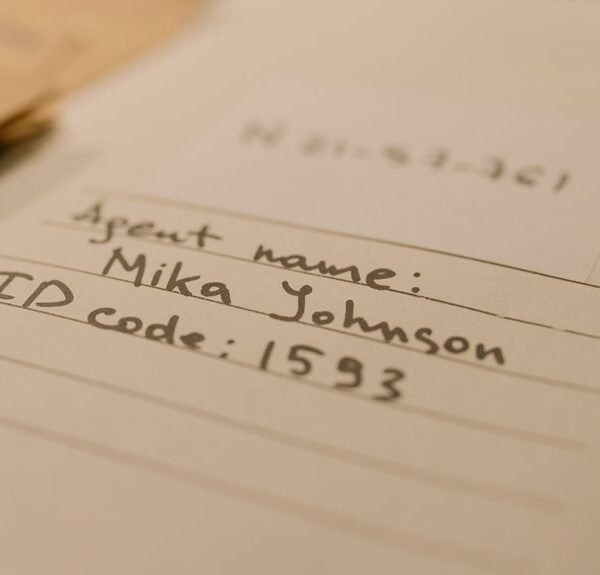 N 21-47-761
Agent name:
Mika Johnson
ID code: 1593